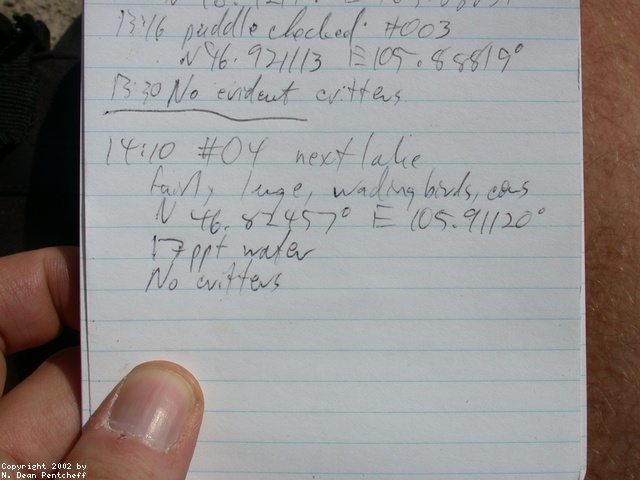 13:16 puddle checked: #003
N 46.921113 E 105.88819°
13:30 No evident critters
14:10 #04 next lake
fairly large, wading birds, cows
N 46.82457° E 105.91120°
17 ppt water
No critters
Copyright 2002 by
N. Dean Pentcheff